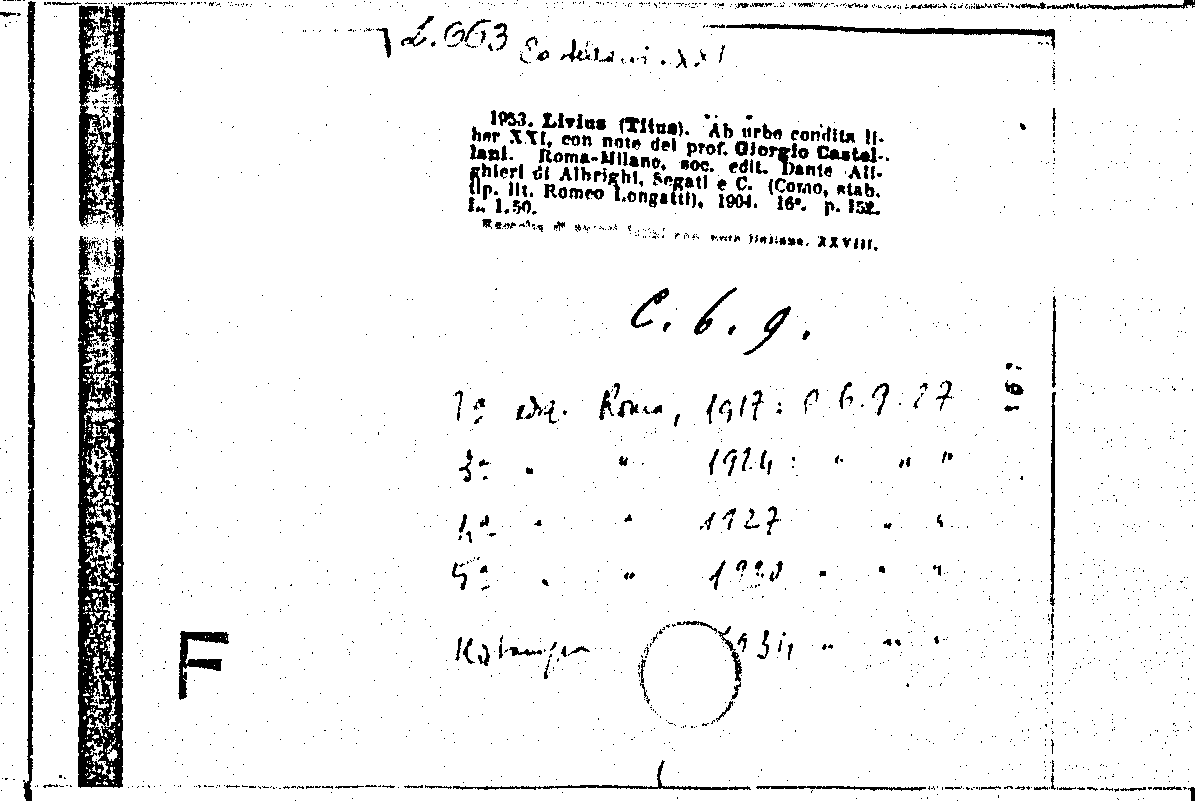 L.663 Castellani. XXI
1953. Livius (Titus). Ab urbe condita li-
ber XXI, con note del prof. Giorgio Castel-
lani. Roma-Milano, soc. edit. Dante Ali-
ghieri di Albrighi, Segati e C. (Como, stab.
tip. lit. Romeo Longatti), 1904. 16°. p. 152.
L. 1.50.
Raccolta di autori latini con note italiane. XXVIII.
C. 6. 9.
1ª ediz. Roma, 1917: C 6.9.27
16°
3ª " " 1924: " " "
4ª " " 1927 " "
5ª " " 1930 " " "
Ristampa 1934 " " "
F